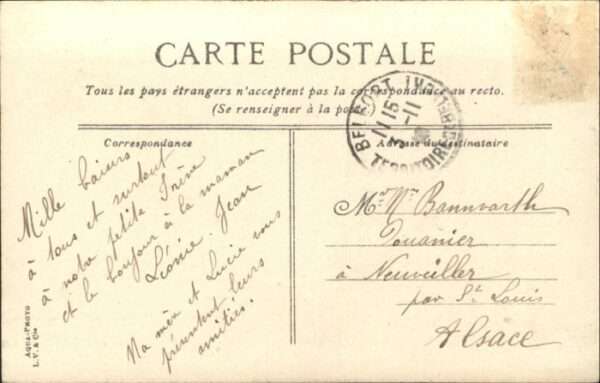 CARTE POSTALE
Tous les pays étrangers n'acceptent pas la correspondance au recto.
(Se renseigner à la poste)
Correspondance
Adresse du destinataire
Mille baisers
à tous et surtout
à notre petite Irène
et le bonjour à la maman
Léonie. Jean
Ma mère et Lucie vous
présentent leurs
amitiés.
BELFORT
11 15
3 -11
TERRITOIRE
Bannwarth
Douanier
à Neuviller
par St. Louis
Alsace
AQUA-PHOTO
L. V. & Cie